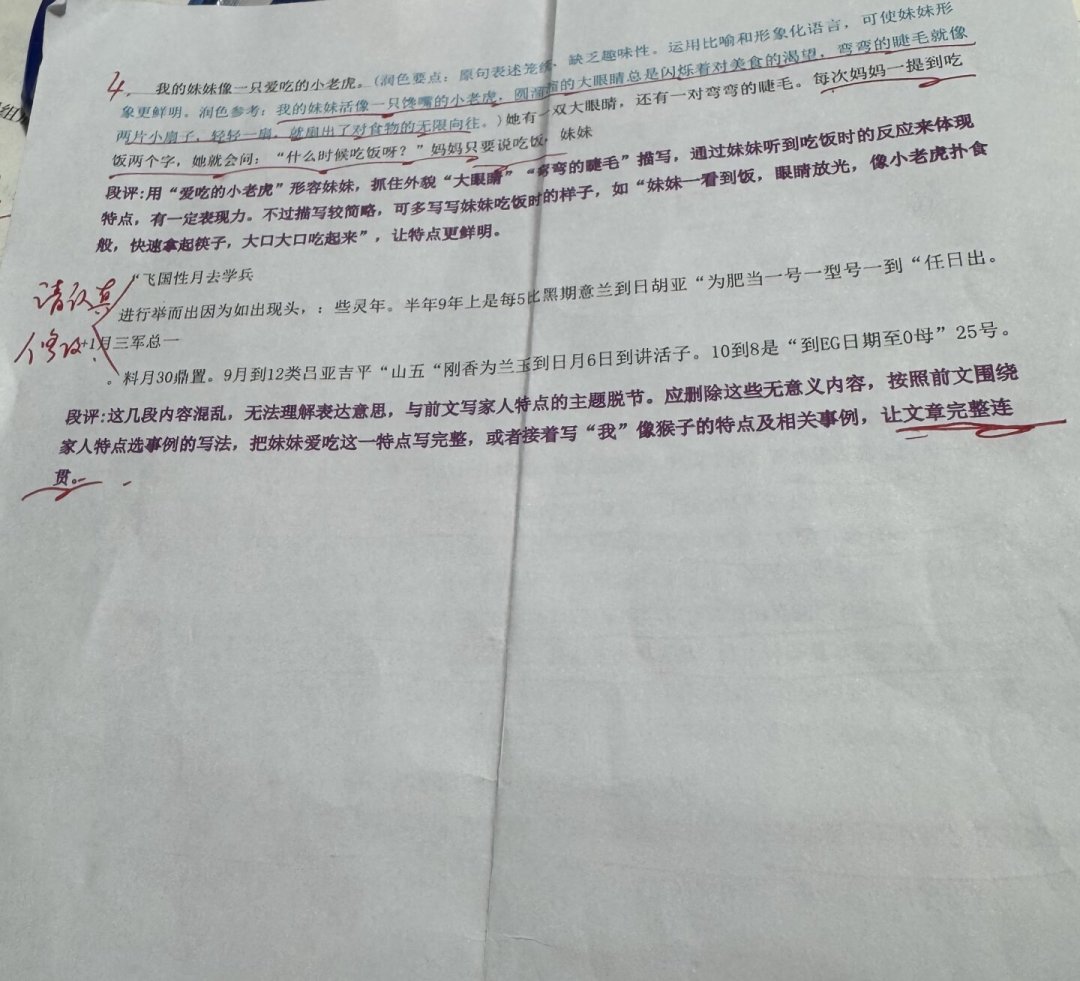 4、 我的妹妹像一只爱吃的小老虎。(润色要点：原句表述笼统，缺乏趣味性。运用比喻和形象化语言，可使妹妹形
象更鲜明。润色参考：我的妹妹活像一只馋嘴的小老虎，圆溜溜的大眼睛总是闪烁着对美食的渴望，弯弯的睫毛就像
两片小扇子，轻轻一扇，就扇出了对食物的无限向往。)她有一双大眼睛，还有一对弯弯的睫毛。每次妈妈一提到吃
饭两个字，她就会问：“什么时候吃饭呀？”妈妈只要说吃饭，妹妹
段评:用“爱吃的小老虎”形容妹妹，抓住外貌“大眼睛”“弯弯的睫毛”描写，通过妹妹听到吃饭时的反应来体现
特点，有一定表现力。不过描写较简略，可多写写妹妹吃饭时的样子，如“妹妹一看到饭，眼睛放光，像小老虎扑食
般，快速拿起筷子，大口大口吃起来”，让特点更鲜明。
“飞国性月去学兵
请认真
进行举而出因为如出现头，：些灵年。半年9年上是每5比黑期意兰到日胡亚“为肥当一号一型号一到“任日出。
修改
+1月三军总一
。料月30鼎置。9月到12类吕亚吉平“山五“刚香为兰玉到日月6日到讲活子。10到8是“到EG日期至0母”25号。
段评:这几段内容混乱，无法理解表达意思，与前文写家人特点的主题脱节。应删除这些无意义内容，按照前文围绕
家人特点选事例的写法，把妹妹爱吃这一特点写完整，或者接着写“我”像猴子的特点及相关事例，让文章完整连
贯。